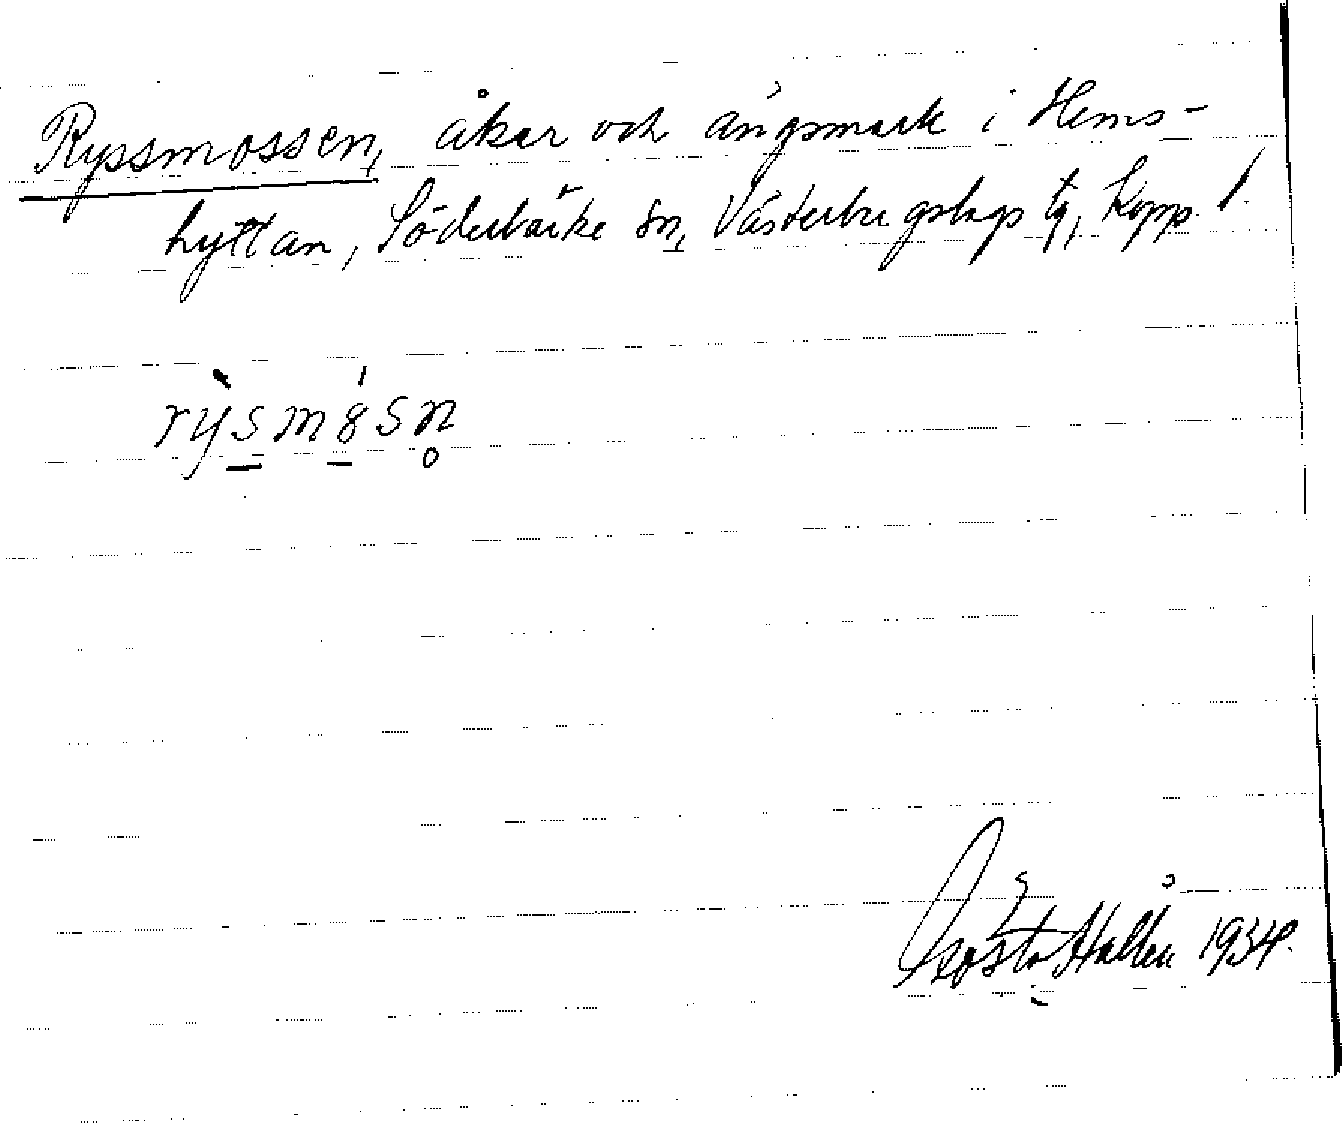 Ryssmossen, åkar och ängsmark i Hems-
hyttan, Söderbärke sn, Västerbergslags tg, Kopp. l.
rỳsmósn̥
Gösta Hallén 1934.